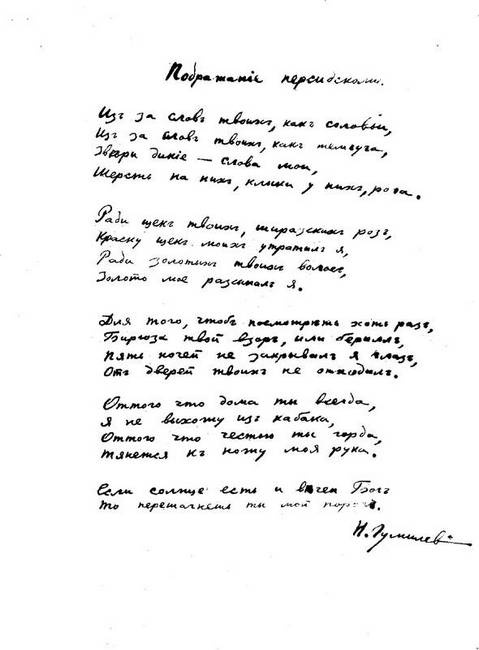 Подражаніе персидскому.
Изъ за словъ твоихъ, какъ соловьи,
Изъ за словъ твоихъ, какъ жемчуга,
Звѣри дикіе — слова мои,
Шерсть на нихъ, клыки у нихъ, рога.
Ради щекъ твоихъ, ширазскихъ розъ,
Краску щекъ моихъ утратилъ я,
Ради золотыхъ твоихъ волосъ,
Золото мое разсыпалъ я.
Для того, чтобъ посмотрѣть хоть разъ,
Бирюза твой взоръ, или бериллъ,
Пять ночей не закрывалъ я глазъ,
Отъ дверей твоихъ не отходилъ.
Оттого что дома ты всегда,
Я не выхожу изъ кабака,
Оттого что честью ты горда,
Тянется къ ножу моя рука.
Если солнце есть и вѣченъ Богъ
То перешагнешь ты мой порогъ.
Н. Гумилевъ